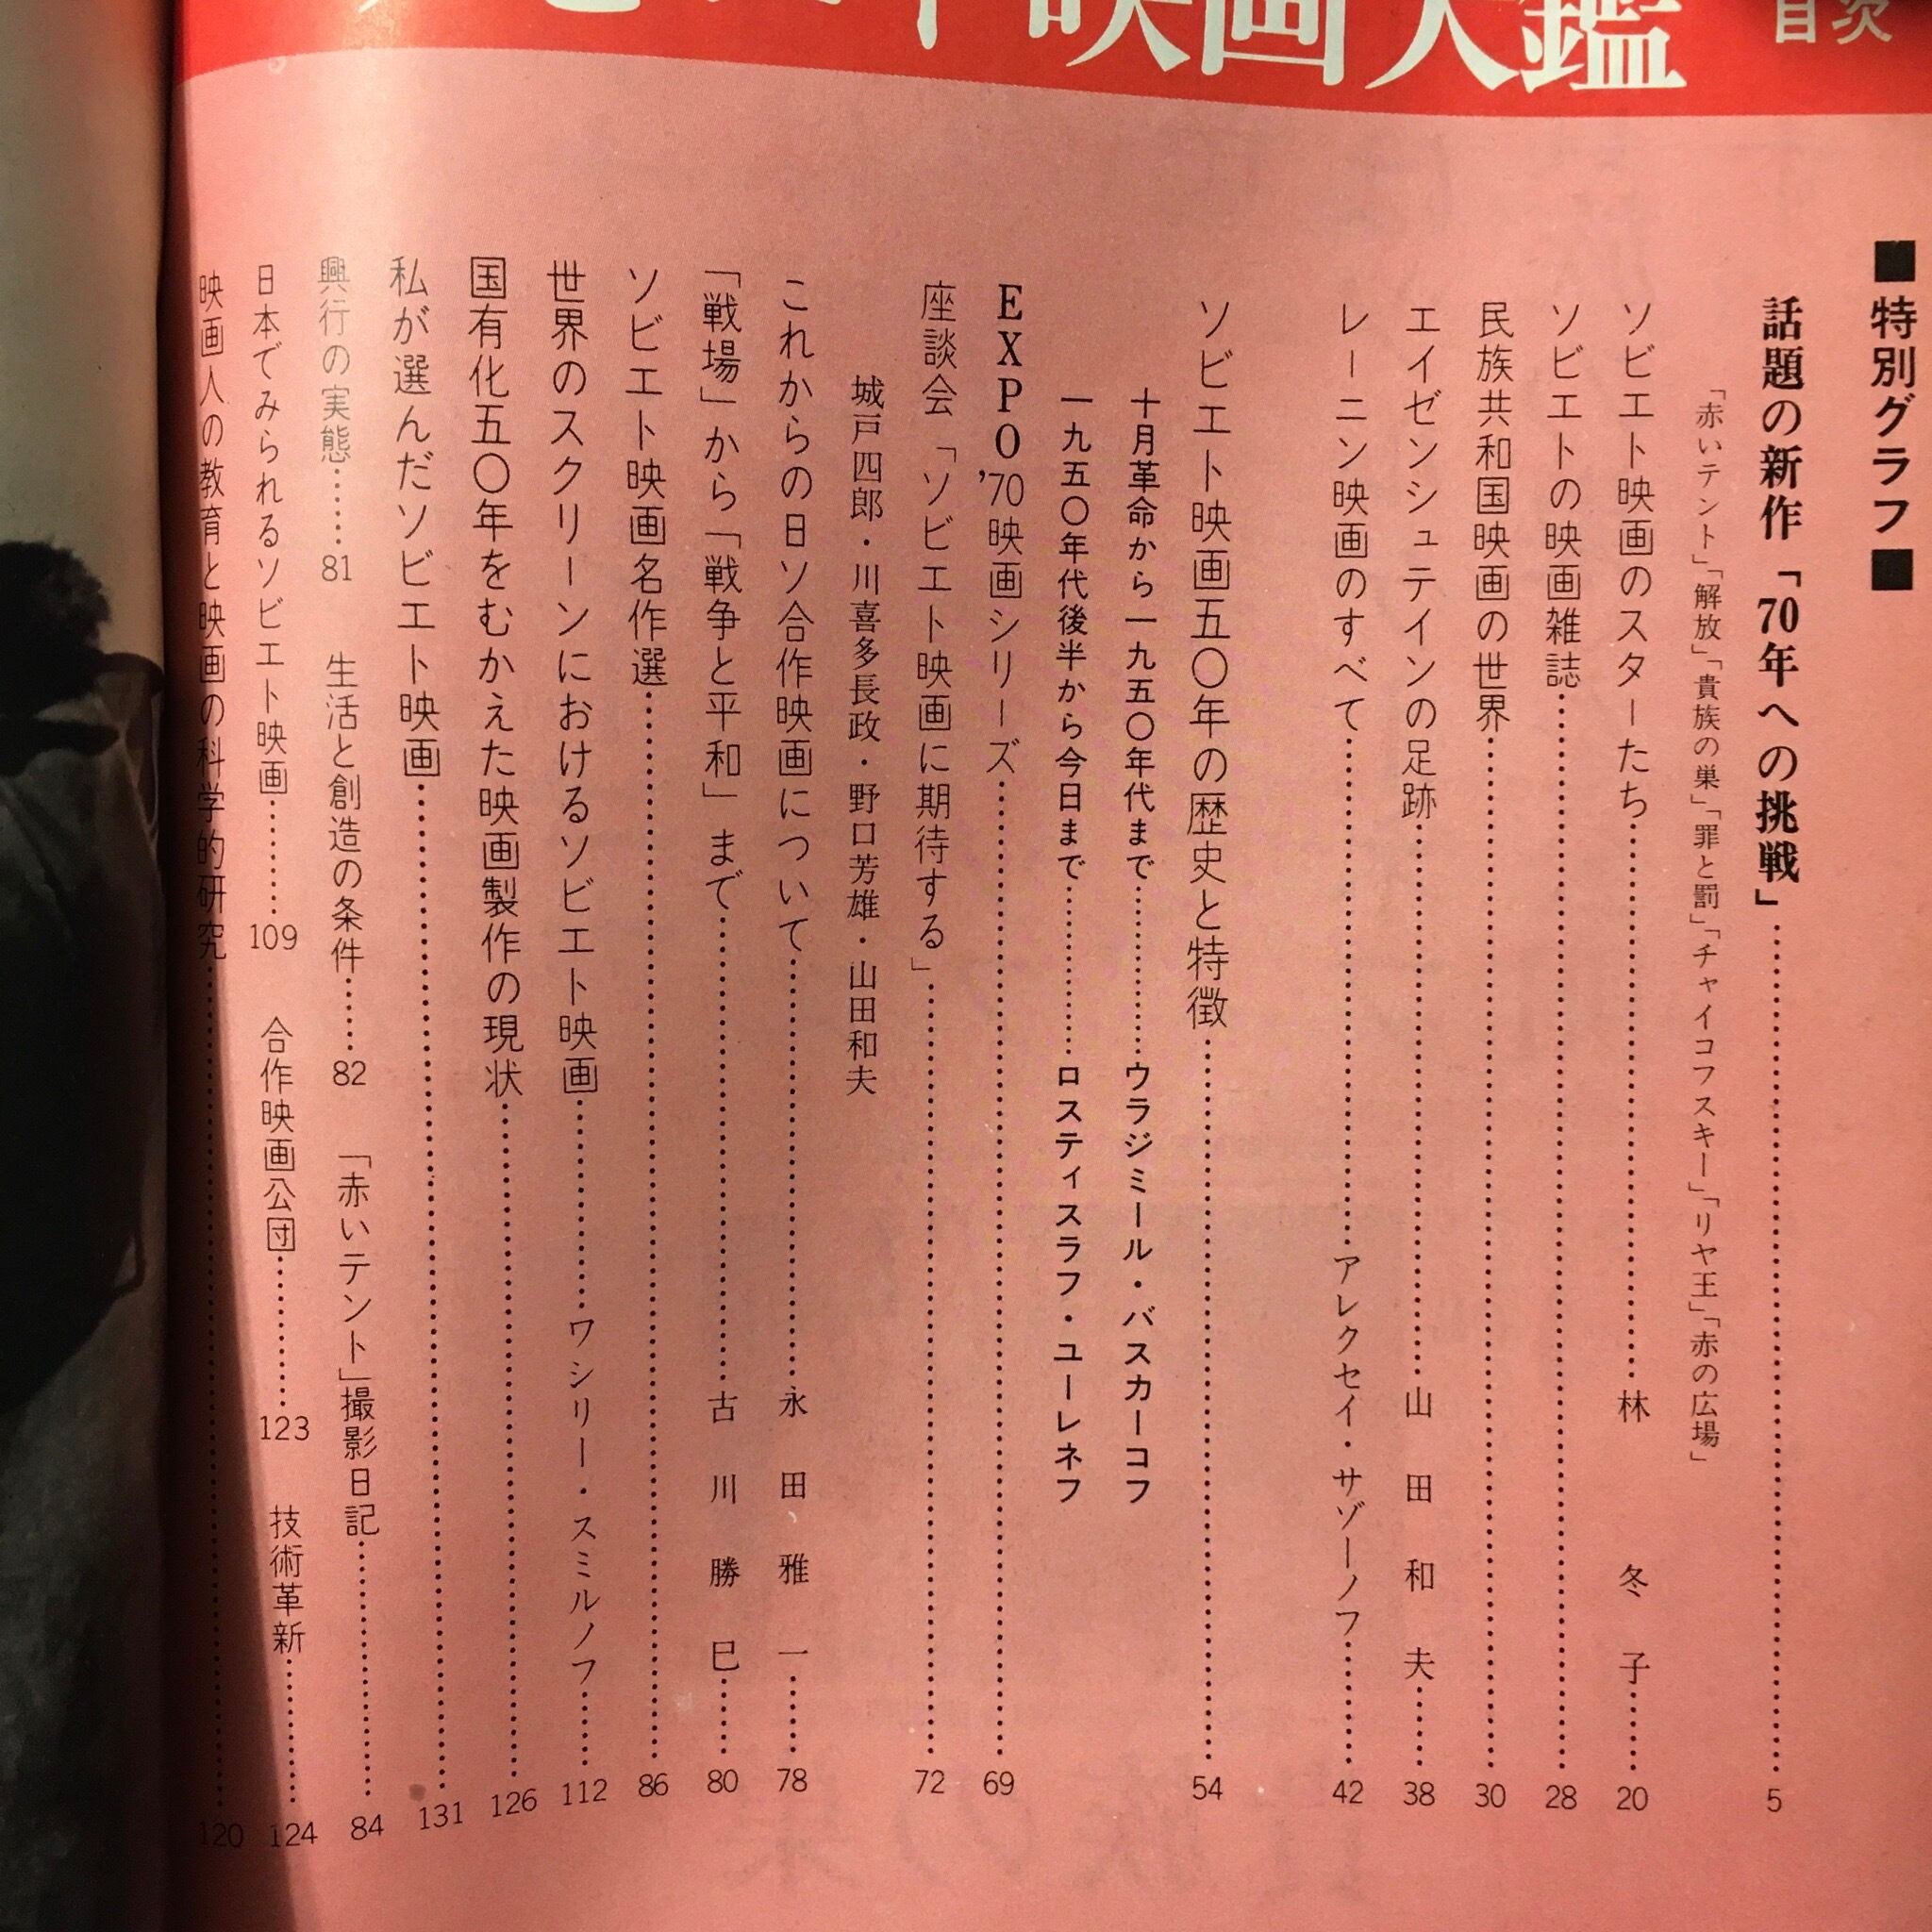 映画大鑑
目次
■特別グラフ■
話題の新作「70年への挑戦」……5
「赤いテント」「解放」「貴族の巣」「罪と罰」「チャイコフスキー」「リヤ王」「赤の広場」
ソビエト映画のスターたち……林冬子……20
ソビエトの映画雑誌……28
民族共和国映画の世界……30
エイゼンシュテインの足跡……山田和夫……38
レーニン映画のすべて……アレクセイ・サゾーノフ……42
ソビエト映画五〇年の歴史と特徴……54
十月革命から一九五〇年代まで……ウラジミール・バスカーコフ
一九五〇年代後半から今日まで……ロスティスラフ・ユーレネフ
EXPO'70映画シリーズ……69
座談会「ソビエト映画に期待する」……72
城戸四郎・川喜多長政・野口芳雄・山田和夫
これからの日ソ合作映画について……永田雅一……78
「戦場」から「戦争と平和」まで……古川勝巳……80
ソビエト映画名作選……86
世界のスクリーンにおけるソビエト映画……ワシリー・スミルノフ……112
国有化五〇年をむかえた映画製作の現状……126
私が選んだソビエト映画……131
興行の実態……81 生活と創造の条件……82 「赤いテント」撮影日記……84
日本でみられるソビエト映画……109 合作映画公団……123 技術革新……124
映画人の教育と映画の科学的研究……120